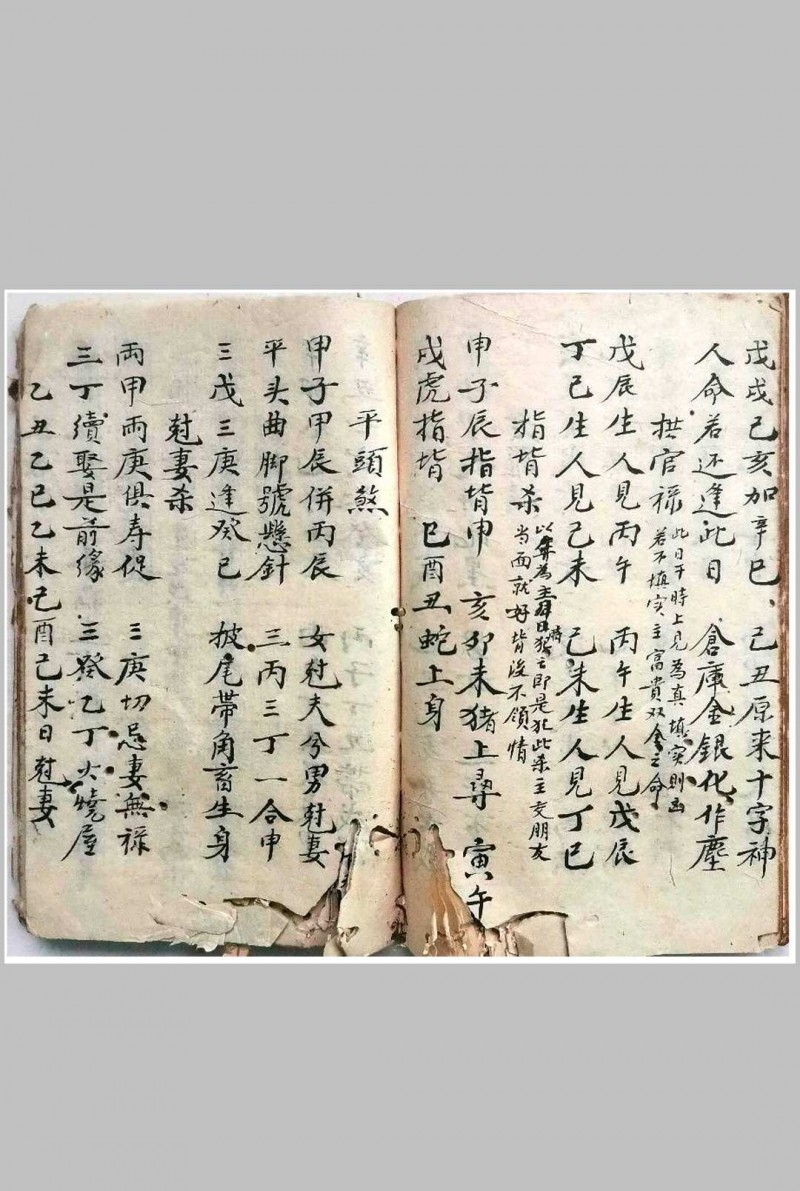 戊戌己亥加辛巳、己丑原来十字神
人命若还逢此日 倉庫金銀化作塵
拱官禄 此日干時上見為真填实則凶
若不填实主富貴双全之命
戊辰生人見丙午 丙午生人見戊辰
丁巳生人見己未 己未生人見丁巳
指背杀 以年為主尋日時犯之即是犯此杀主交朋友
当面就好背後不領情
申子辰指背申 亥卯未猪上尋 寅午
戌虎指背 巳酉丑蛇上身
平頭煞
甲子甲辰併丙辰 女尅夫兮男尅妻
平头曲脚號懸針 三丙三丁一合申
三戊三庚逢癸巳 披尾帶角畜生身
尅妻杀
両甲両庚俱寿促 三庚切忌妻無禄
三丁續娶是前缘 三癸乙丁火燒屋
乙丑乙巳乙未己酉己未日尅妻